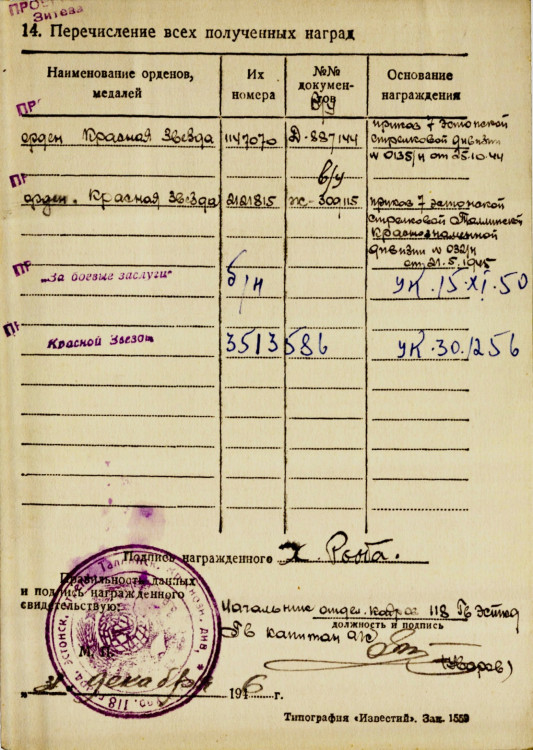 14. Перечисление всех полученных наград
Наименование орденов, медалей
Их номера
№№ документов
Основание награждения
в/у
орден Красная Звезда 1147070 Д-887144 приказ 7 эстонской
стрелковой дивизии
№ 0135/н от 25.10.44
в/у
орден. Красная Звезда 2121815 Ж-309115 приказ 7 эстонской
стрелковой
Краснознаменной
дивизии № 032/н
от 21.5.1945
„За боевые заслуги" б/н УК.15.XI.50
Красной Звезды 3513586 УК.30.1256
Подпись награжденного
Правильность данных
и подпись награжденного
свидетельствую:
Начальник отдел. кадров 118 Гв Эст
должность и подпись
Гв капитан
М. П.
декабря 1946 г.
Типография «Известий». Зак. 1559